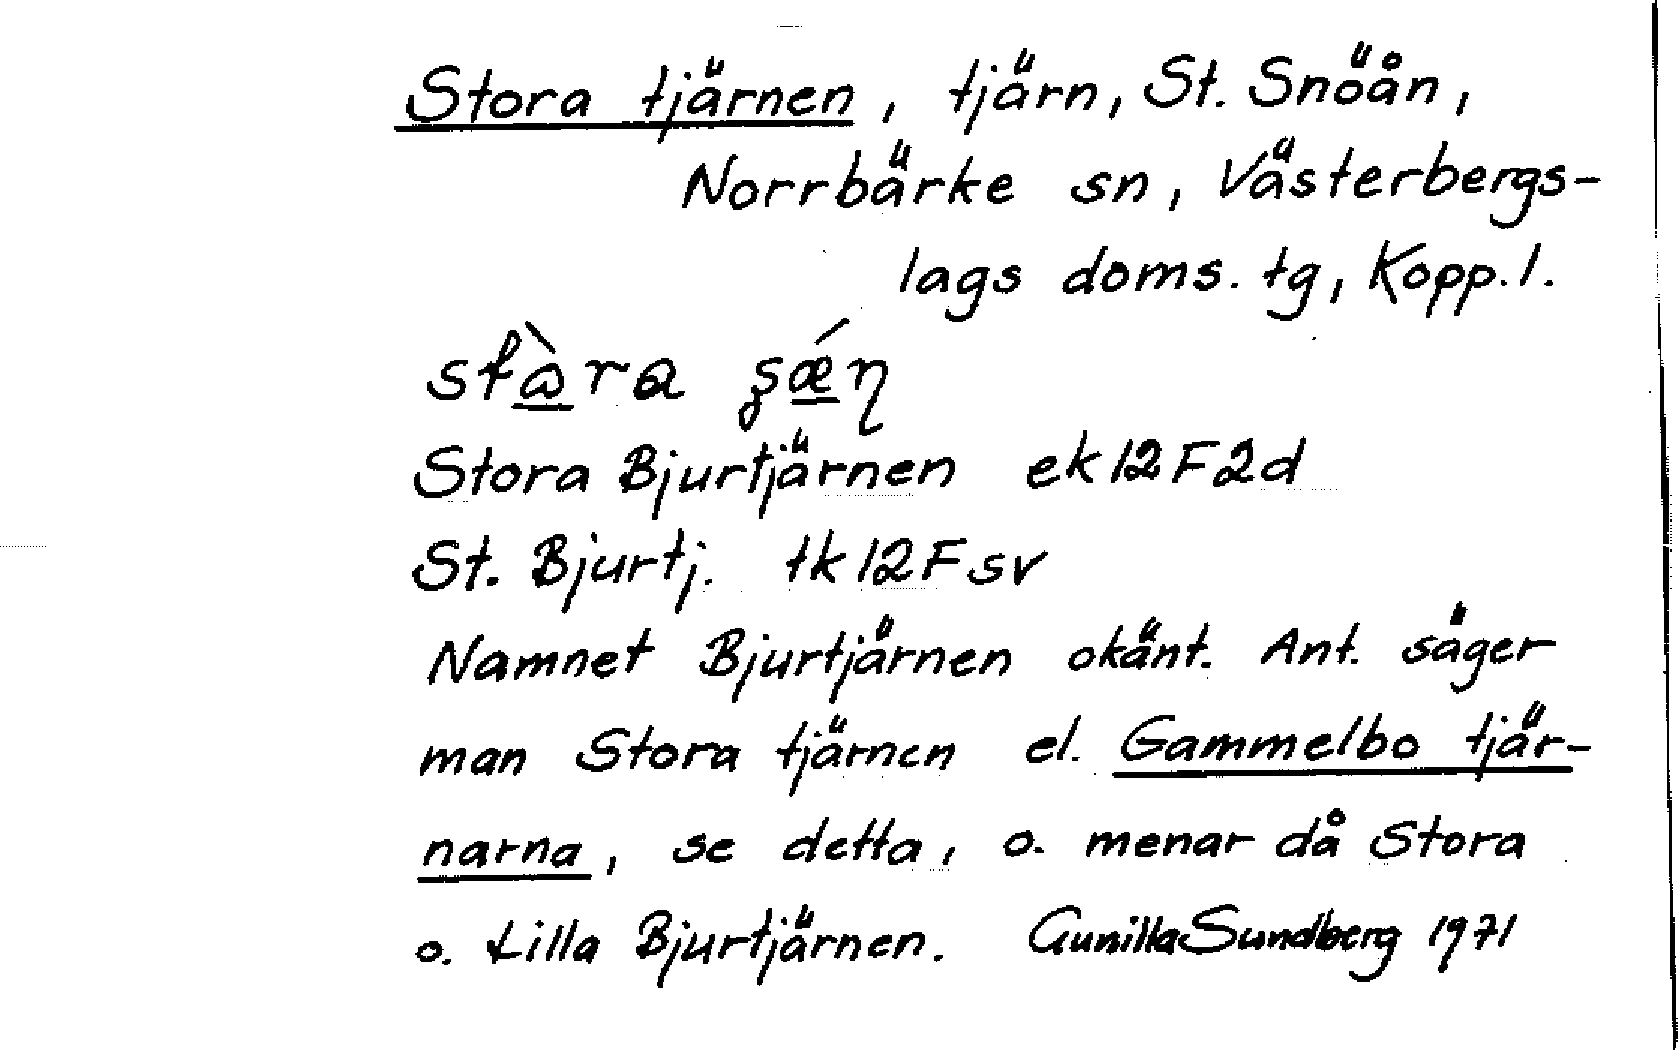 Stora tjärnen, tjärn, St. Snöån,
Norrbärke sn, Västerbergs-
lags doms. tg, Kopp. l.
Stora Bjurtjärnen ek 12F2d
St. Bjurtj. tk 12Fsv
Namnet Bjurtjärnen okänt. Ant. säger
man Stora tjärnen el. Gammelbo tjär-
narna, se detta, o. menar då Stora
o. Lilla Bjurtjärnen. Gunilla Sundberg 1971